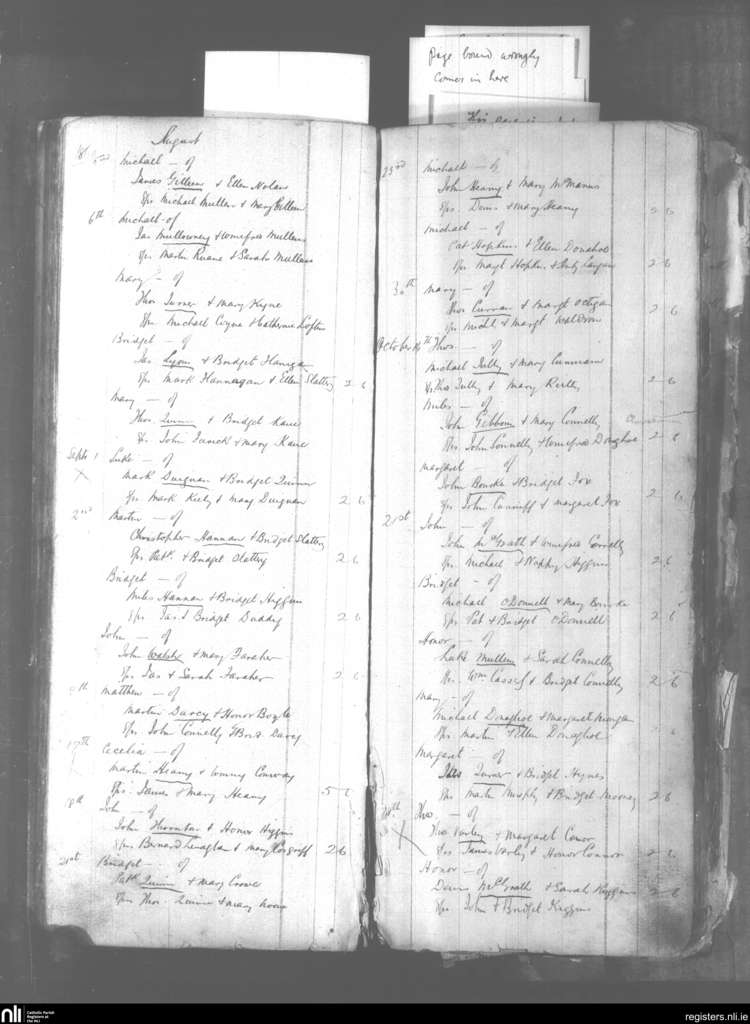 Page bound wrongly
comes in here
August
Michael - of
James Gilleen & Ellen Nolan
Sps Michael Mullen & Mary Gilleen
6th Michael - of
Jas Mullowney & Winefred Mullen
Sps Martin Ruane & Sarah Mullen
Mary - of
Thos Turner & Mary Kyne
Sps Michael Coyne & Catherine Loftus
Bridget - of
Jas Lyons & Bridget Hanigan
Sps Mark Hannagan & Ellen Slattery 2 6
Mary - of
Thos Quinn & Bridget Kane
Sps John & Mary Kane
Septr 1 Luke - of
Mark Durgnan & Bridget Quinn
Sps Mark Kiely & Mary Durgnan 2 6
2nd Martin - of
Christopher Hannan & Bridget Slattery
Sps Patk & Bridget Slattery 2 6
Bridget - of
Miles Hannan & Bridget Higgins
Sps Jas & Bridget Duddy 2 6
John - of
John Walsh & Mary Faraher
Sps Jas & Sarah Faraher 2 6
Matthew - of
Martin Darcy & Honor Boyle
Sps John Connelly & Darcy
17th Cecelia - of
Martin Heany & Winny Conway
Sps James & Mary Heany 5
18th John - of
John Thornton & Honor Higgins
Sps Bernard & Mary Cosgriff 2 6
21st Bridget - of
Patk Quinn & Mary Crowe
Sps Thos Quinn & Mary
23rd Michael - of
John Heany & Mary McManus
Sps Denis & Mary Heany
Michael - of
Pat Hopkins & Ellen Donahoe
Sps Margt Hopkins & 2 6
30th Mary - of
Thos Curran & Margt 2 6
Sps Michl & Margt Waldron
October 14th Thos - of
Michael Tully & Mary Cunnane
Sps Thos Tully & Mary 2 6
Miles - of
John Gibbons & Mary Connelly
Sps John Connelly & Winefred Donaghoe 2 6
Margaret - of
John Bourke & Bridget Fox
Sps John Cunniff & Margaret Fox 2 6
21st John - of
John McGrath & Winefred Connelly
Sps Michael & Higgins 2 6
Bridget - of
Michael O'Donnell & Mary Bourke
Sps Pat & Bridget O'Donnell 2 6
Honor - of
Luke Mullen & Sarah Connelly
Sps Wm & Bridget Connelly 2 6
Mary - of
Michael Donaghoe & Margaret Morgan
Sps Martin & Ellen Donaghoe
Margaret - of
Thos Turner & Bridget Hynes
Sps Martin Murphy & Bridget Mooney 2 6
Thos - of
Thos Varley & Margaret Conor
Sps James Varley & Honor Connor 2 6
Honor - of
Denis McGrath & Sarah Higgins 2 6
Sps John & Bridget Higgins
nli
Catholic Parish
Registers at
the NLI
registers.nli.ie